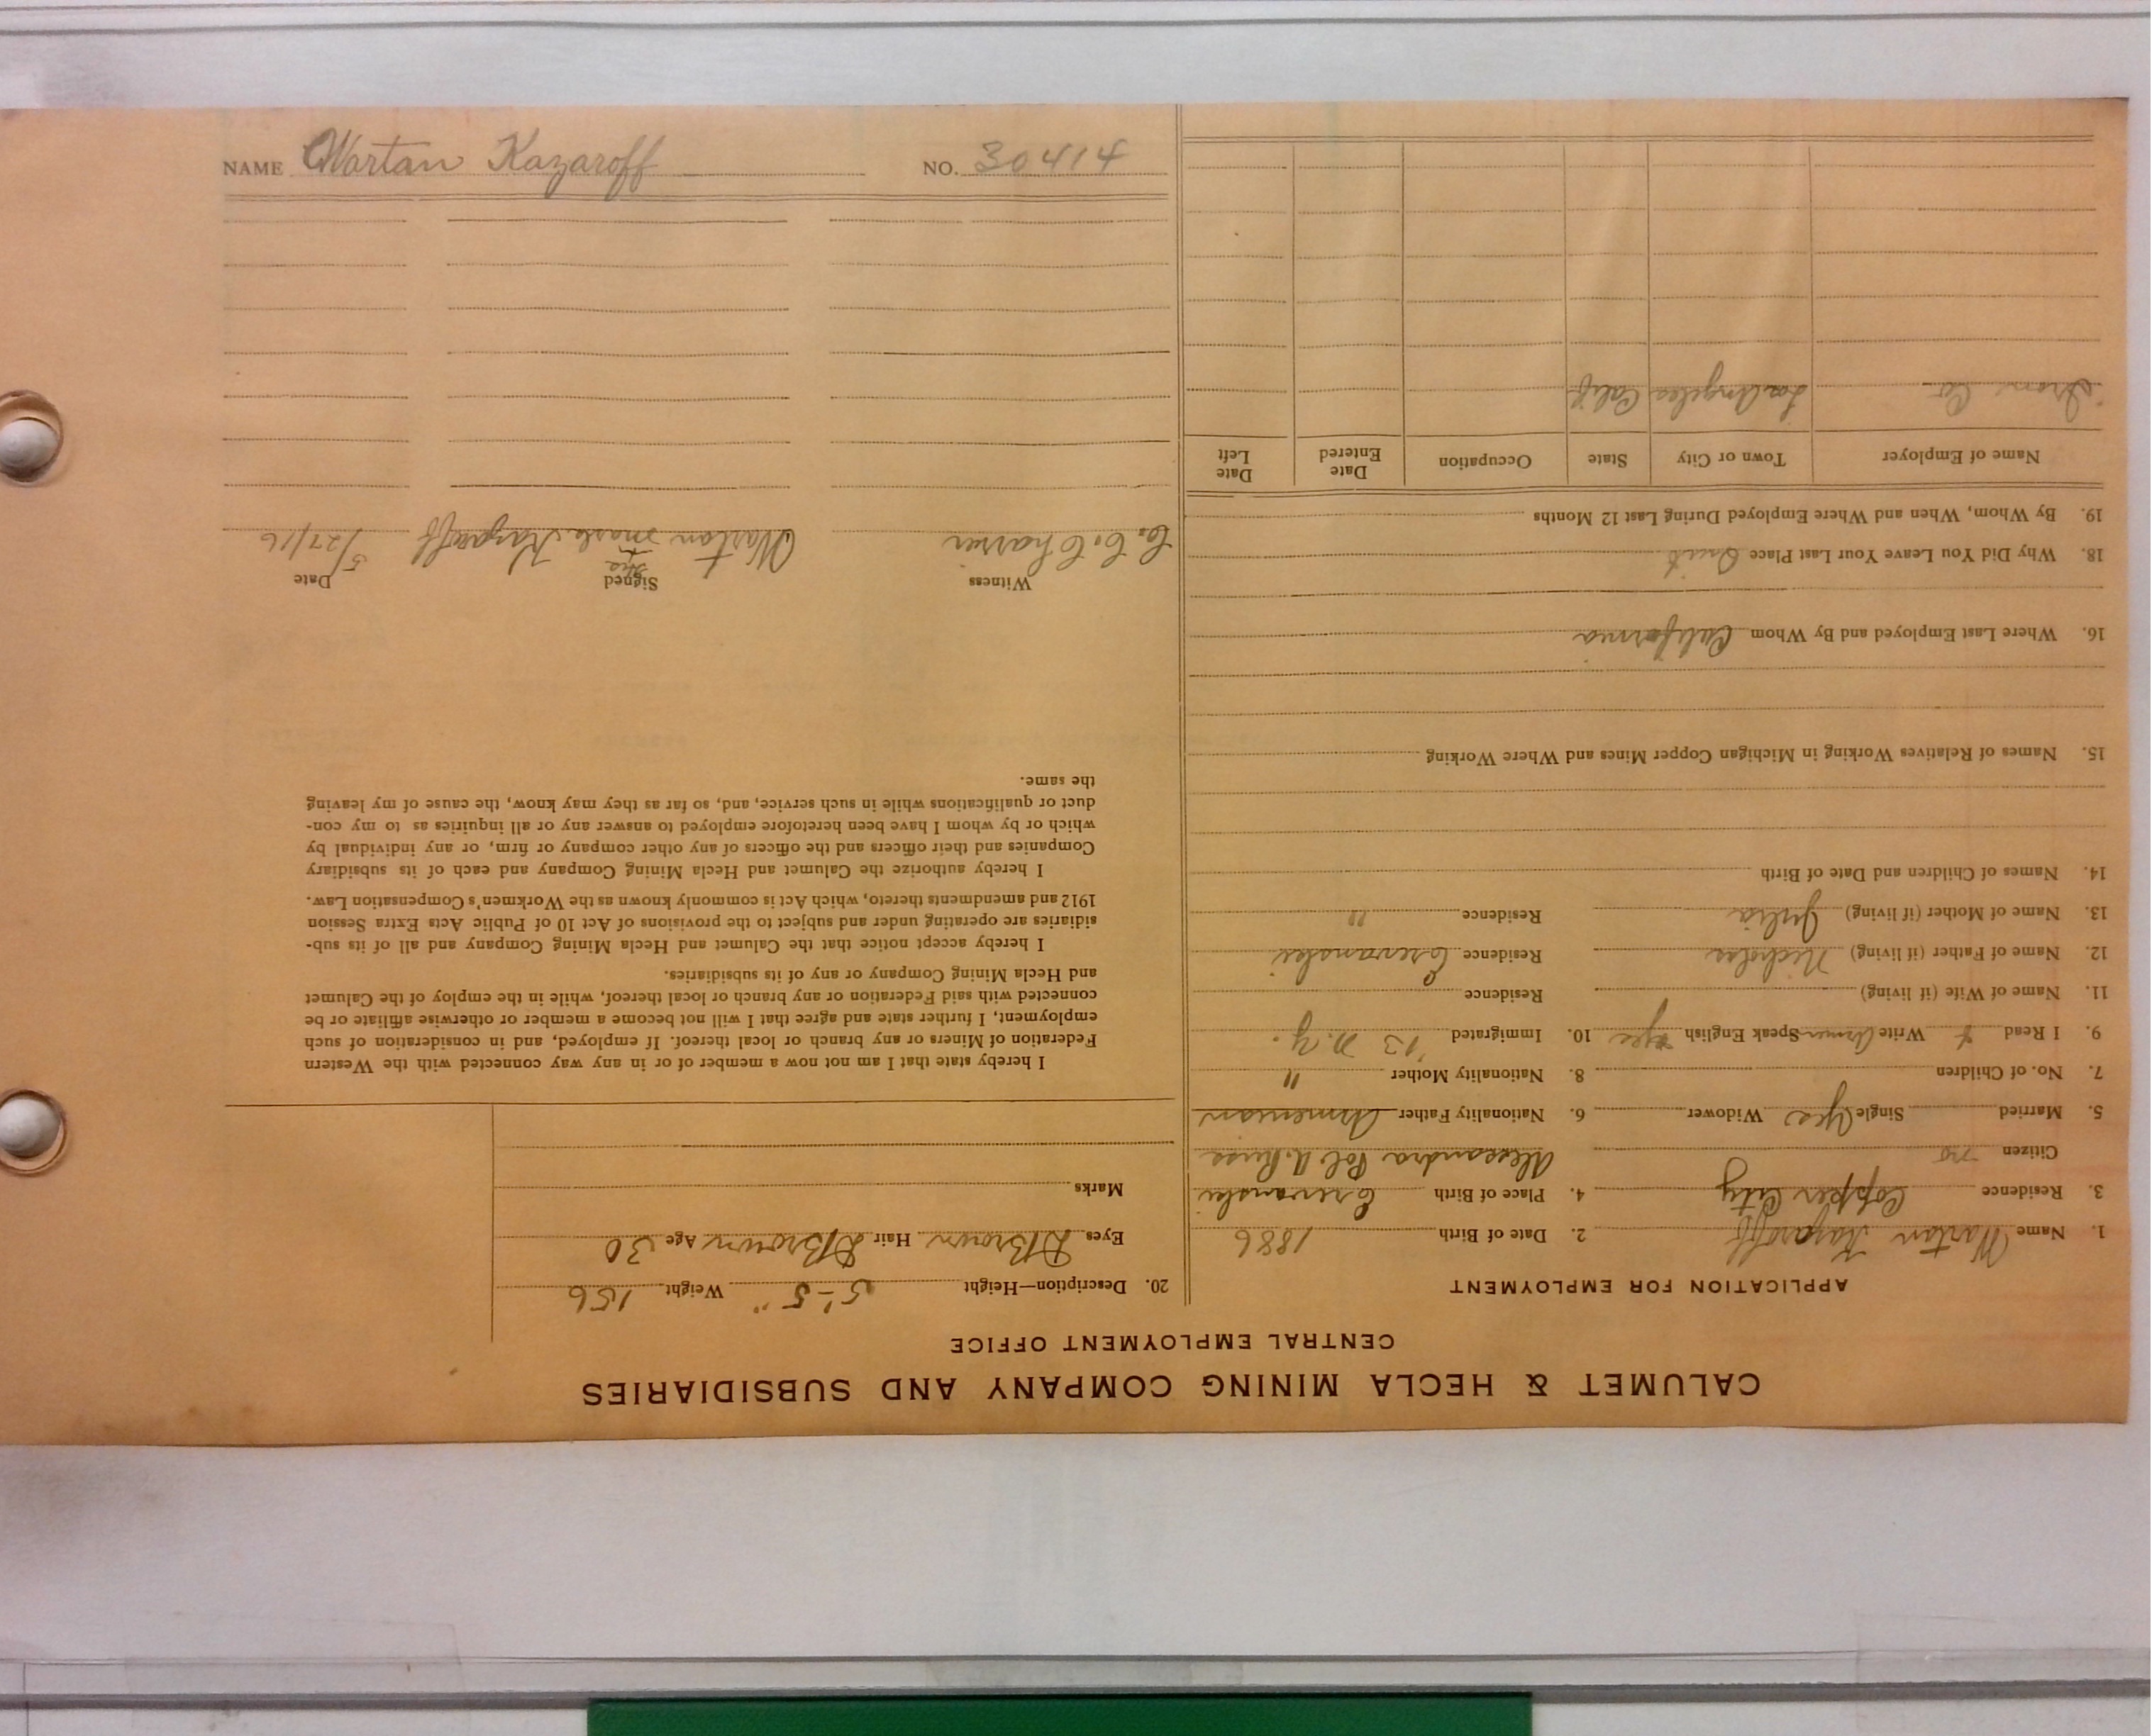 CALUMET & HECLA MINING COMPANY AND SUBSIDIARIES
CENTRAL EMPLOYMENT OFFICE
APPLICATION FOR EMPLOYMENT
1. Name Wartan Kazaroff 2. Date of Birth 1886
3. Residence Copper City 4. Place of Birth Erevanski
Citizen no Alexandra Pol. A. Russ
5. Married Single Yes Widower 6. Nationality Father Armenian
7. No. of Children 8. Nationality Mother "
9. I Read & Write Armen Speak English yes 10. Immigrated '13 N.Y.
11. Name of Wife (if living) Residence
12. Name of Father (if living) Nicholas Residence Erevanski
13. Name of Mother (if living) Julia Residence "
14. Names of Children and Date of Birth
15. Names of Relatives Working in Michigan Copper Mines and Where Working
16. Where Last Employed and By Whom California
18. Why Did You Leave Your Last Place Quit
19. By Whom, When and Where Employed During Last 12 Months
Name of Employer Town or City State Occupation Date Entered Date Left
Iron Co Los Angeles Calif
20. Description—Height 5'-5" Weight 156
Eyes D Brown Hair D Brown Age 30
Marks
I hereby state that I am not now a member of or in any way connected with the Western
Federation of Miners or any branch or local thereof. If employed, and in consideration of such
employment, I further state and agree that I will not become a member or otherwise affiliate or be
connected with said Federation or any branch or local thereof, while in the employ of the Calumet
and Hecla Mining Company or any of its subsidiaries.
I hereby accept notice that the Calumet and Hecla Mining Company and all of its sub-
sidiaries are operating under and subject to the provisions of Act 10 of Public Acts Extra Session
1912 and amendments thereto, which Act is commonly known as the Workmen's Compensation Law.
I hereby authorize the Calumet and Hecla Mining Company and each of its subsidiary
Companies and their officers and the officers of any other company or firm, or any individual by
which or by whom I have been heretofore employed to answer any or all inquiries as to my con-
duct or qualifications while in such service, and, so far as they may know, the cause of my leaving
the same.
Witness Signed Date
his
C. C. Wartan + Kazaroff 5/27/16
mark
NAME Wartan Kazaroff NO. 30414